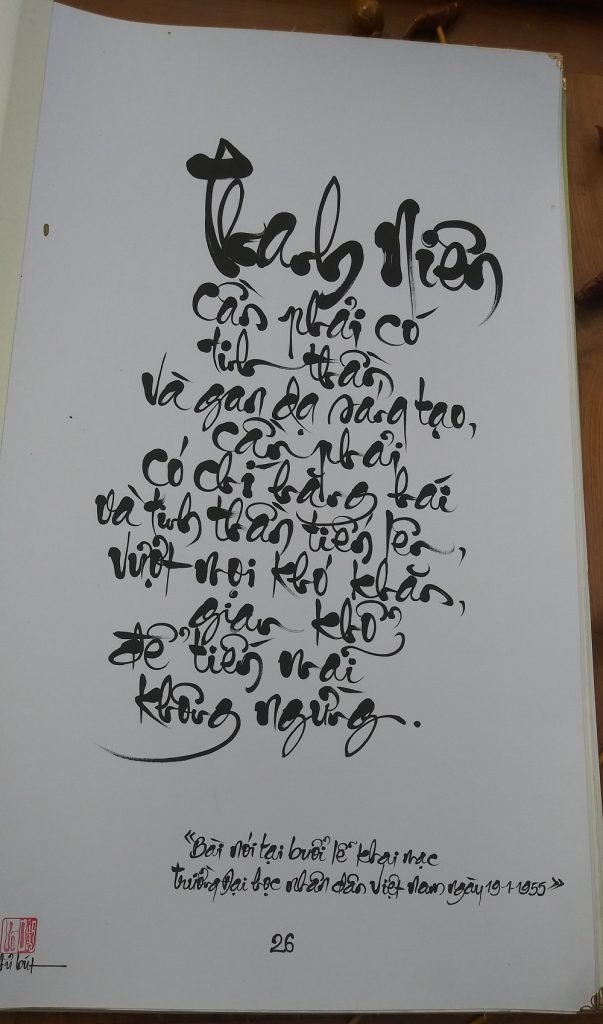 Thanh Niên
cần phải có
tinh thần
và gan dạ sáng tạo,
cần phải
có chí hăng hái
và tinh thần tiến lên,
vượt mọi khó khăn,
gian khổ
để tiến mãi
không ngừng.
«Bài nói tại buổi lễ khai mạc
trường Đại học nhân dân Việt Nam ngày 19-1-1955»
26
bút